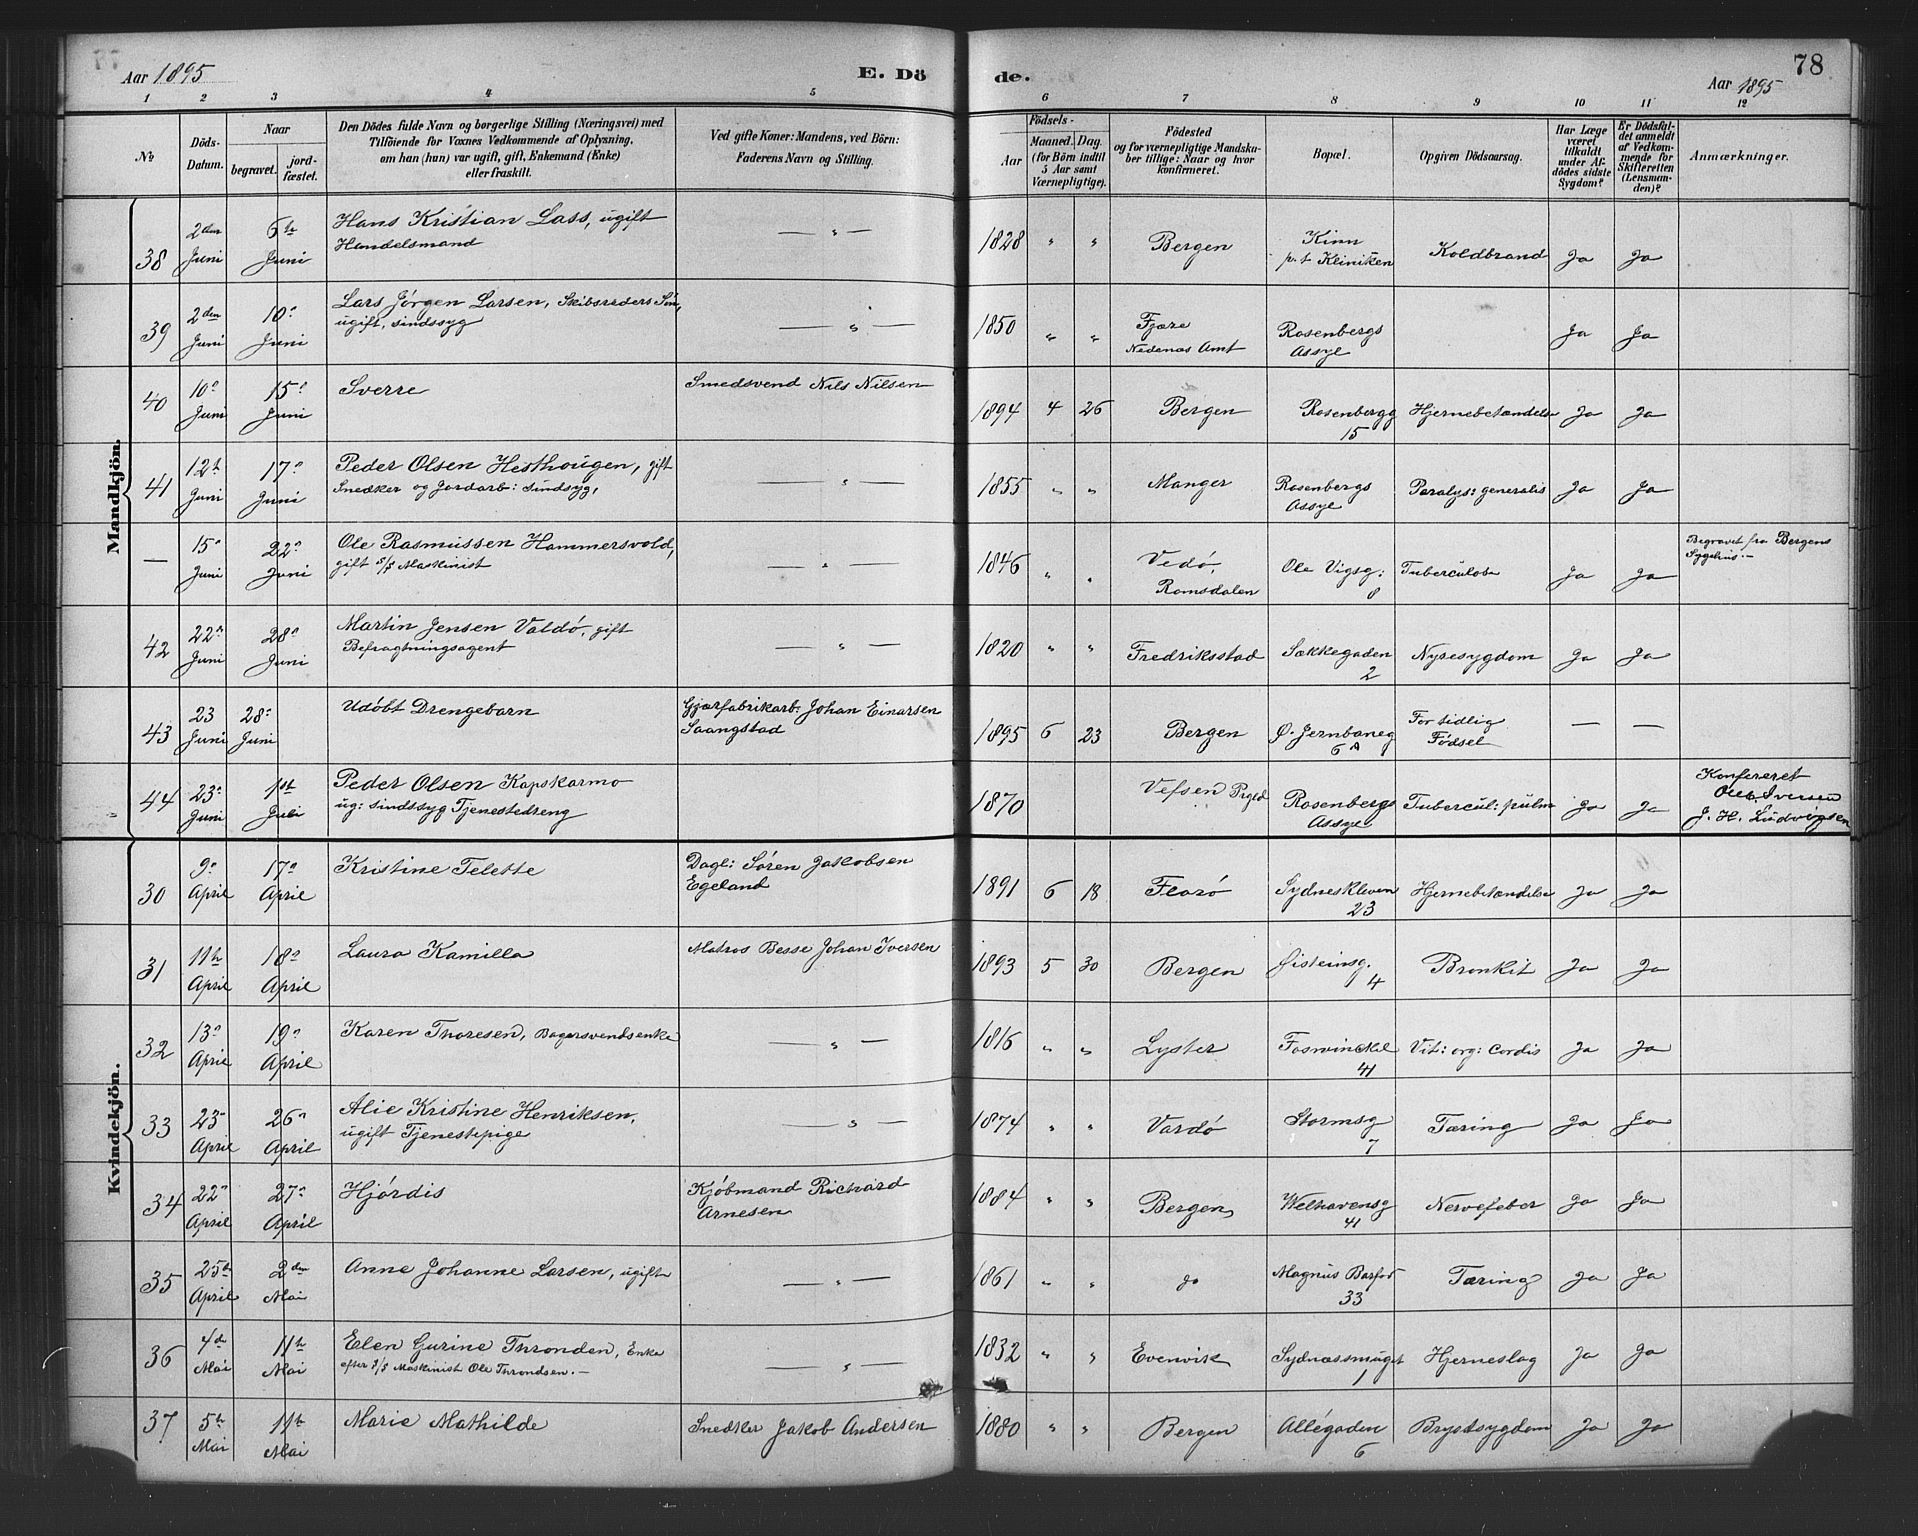 Aar 1895
E. Dö
de.
Aar 1895
78
1 2 3 4 5 6 7 8 9 10 11 12
No
Döds-Datum.
Naar
begravet.
jord-fæstet.
Den Dödes fulde Navn og borgerlige Stilling (Næringsvei) med
Tilföiende for Voxnes Vedkommende af Oplysning,
om han (hun) var ugift, gift, Enkemand (Enke)
eller fraskilt.
Ved gifte Koner: Mandens, ved Börn:
Faderens Navn og Stilling.
Födsels-
Aar
Maaned. Dag.
(for Börn indtil
5 Aar samt
Værnepligtige).
Födested
og for værnepligtige Mandsku-
ber tillige: Naar og hvor
konfirmeret.
Bopæl.
Opgiven Dödsaarsag.
Har Læge
været
tilkaldt
under Af-
dödes sidste
Sygdom?
Er Dödsfal-
det anmeldt
af Vedkom-
mende for
Skifteretten
(Lensman-
den)?
Anmærkninger.
Mandkjön.
38 2den Juni 6te Juni Hans Kristian Lass, ugift
Handelsmand — " — 1828 " " Bergen Kinn
p.t Kliniken Koldbrand Ja Ja
39 2den Juni 10n Juni Lars Jørgen Larsen, Skibsreders Søn,
ugift, sindssyg — " — 1850 " " Fjære
Nedenæs Amt Rosenbergs
Assye Ja Ja
40 10n Juni 15n Juni Sverre Smedsvend Nils Nilsen 1894 4 26 Bergen Rosenbergg
15 Hjernebetændelse Ja Ja
41 12t Juni 17n Juni Peder Olsen Hesthougen, gift
Snedker og Jordarb: sindsyg, — " — 1855 " " Manger Rosenbergs
Assye Paralys: generalis Ja Ja
— 15n Juni 22n Juni Ole Rasmussen Hammersvold,
gift S/S Maskinist — " — 1846 " " Vedø,
Romsdalen Ole Vigsg:
8 Tuberculose Ja Ja Begravet fra Bergens
Sygehus.—
42 22n Juni 28n Juni Martin Jensen Valdø, gift
Befragtningsagent — " — 1820 " " Fredriksstad Sækkegaden
2 Nyresygdom Ja Ja
43 23 Juni 28n Juni Udøbt Drengebarn Gjærfabrikarb: Johan Einarsen
Saangstad 1895 6 23 Bergen Ø. Jernbaneg
6A For tidlig
Fødsel — —
44 23n Juni 1ste Juli Peder Olsen Kapskarmo
ug: sindssyg Tjenestedreng 1870 Vefsen Prgld Rosenbergs
Assye Tubercul: pulm Ja Ja Konfereret
Ole Iversen
J. H. Ludvigsen
Kvindekjön.
30 9n April 17n April Kristine Telette Dagl: Søren Jakobsen
Egeland 1891 6 18 Florø Sydneskleven
23 Hjernebetændelse Ja Ja
31 11te April 18n April Laura Kamilla Matros Besse Johan Iversen 1893 5 30 Bergen Øisteinsg.
4 Bronkit Ja Ja
32 13n April 19n April Karen Thoresen, Bagersvendsenke — " — 1816 " " Lyster Fosswinckel
41 Vit: org: Cordis Ja Ja
33 23n April 26n April Alie Kristine Henriksen,
ugift Tjenestepige — " — 1874 " " Vardø Stormsg
7 Tæring Ja Ja
34 22n April 27n April Hjørdis Kjøbmand Richard
Arnesen 1884 " " Bergen Welhavensg
41 Nervefeber Ja Ja
35 25de April 2den Mai Anne Johanne Larsen, ugift — " — 1861 " " do Magnus Barfod
33 Tæring Ja Ja
36 4de Mai 11te Mai Elen Gurine Thronden, Enke
efter S/S Maskinist Ole Throndsen.— — " — 1832 " " Evenvik Sydnæssmuget
1 Hjerneslag Ja Ja
37 5te Mai 11te Mai Marie Mathilde Snedker Jakob Andersen 1880 " " Bergen Allégaden
6 Brystsygdom Ja Ja